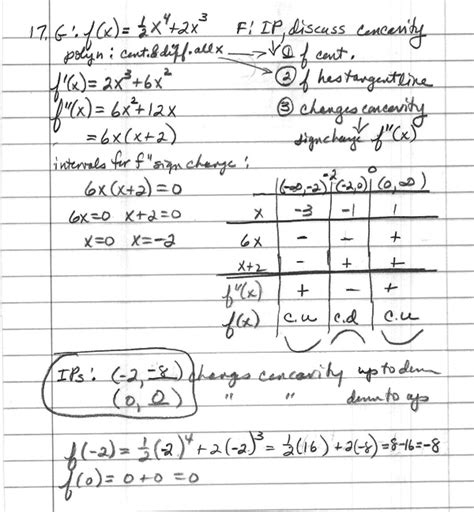 17. G: f(x) = ½x⁴+2x³   F: IP, discuss concavity
polyn: cont. & diff. all x → ① f cont.
f'(x) = 2x³+6x²   ② f has tangent line
f"(x) = 6x²+12x   ③ changes concavity
= 6x(x+2)   sign change f"(x)
intervals for f" sign change:
6x(x+2) = 0   (-∞,-2) -2 (-2,0) 0 (0,∞)
6x=0  x+2=0   x  -3  -1  1
x=0  x=-2   6x  -  -  +
x+2  -  +  +
f"(x)  +  -  +
f(x)  c.u  c.d  c.u
IPs: (-2, -8) changes concavity up to down
(0, 0)  "  "  down to up
f(-2) = ½(-2)⁴ + 2(-2)³ = ½(16) + 2(-8) = 8-16 = -8
f(0) = 0 + 0 = 0